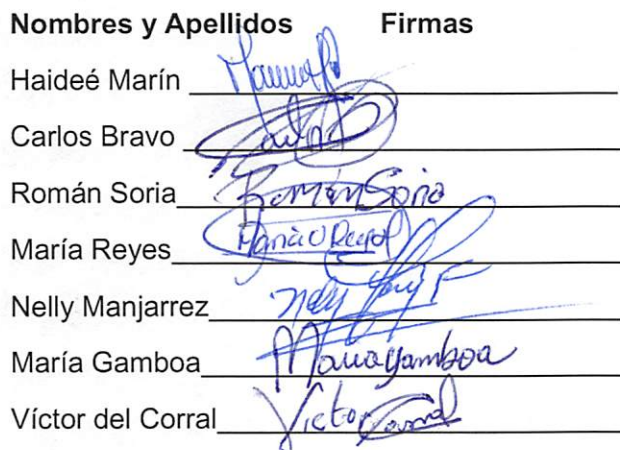 Nombres y Apellidos Firmas
Haideé Marín
Carlos Bravo
Román Soria Román Soria
María Reyes
Nelly Manjarrez Nelly
María Gamboa María Gamboa
Víctor del Corral Victor Corral